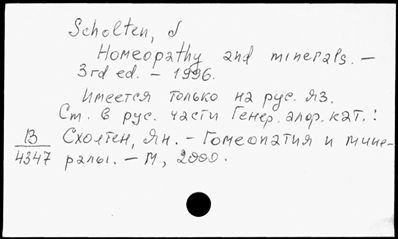 Scholten, J
Homeopathy and minerals. –
3rd ed. – 1996.
Имеется только на рус. яз.
Ст. в рус. части Генер. алф. кат.:
В
4347
Схолтен, Ян. – Гомеопатия и мине-
ралы. – М, 2000.